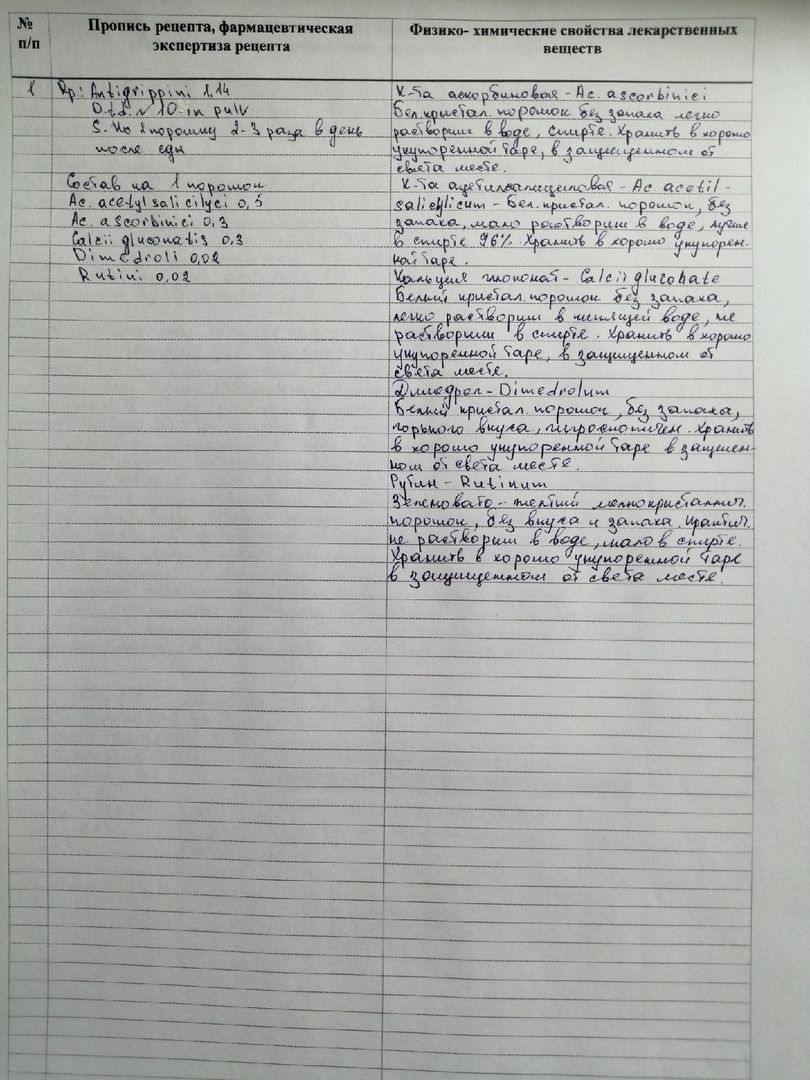 №
п/п
Пропись рецепта, фармацевтическая
экспертиза рецепта
Физико- химические свойства лекарственных
веществ
1
Rp: Antigrippini 1,14
D.t.d. N 10 in pulv
S. По 1 порошку 2-3 раза в день
после еды
Состав на 1 порошок
Ac. acetylsalicilyci 0,5
Ac. ascorbinici 0,3
Calcii gluconatis 0,3
Dimedroli 0,02
Rutini 0,02
К-та аскорбиновая - Ac. ascorbinici
Бел. кристал. порошок без запаха легко
растворим в воде, спирте. Хранить в хорошо
укупоренной таре, в защищенном от
света месте.
К-та ацетилсалициловая - Ac. acetil-
salicylicum - Бел. кристал. порошок, без
запаха, мало растворим в воде, лучше
в спирте 96%. Хранить в хорошо укупорен-
ной таре.
Кальция глюконат - Calcii gluconate
Белый кристал. порошок без запаха,
легко растворим в кипящей воде, не
растворим в спирте. Хранить в хорошо
укупоренной таре, в защищенном от
света месте.
Димедрол - Dimedrolum
Белый кристал. порошок, без запаха,
горького вкуса, гигроскопичен. Хранить
в хорошо укупоренной таре в защищен-
ном от света месте.
Рутин - Rutinum
Зеленовато - желтый мелнокристаллич.
порошок, без вкуса и запаха. Практич.
не растворим в воде, мало в спирте.
Хранить в хорошо укупоренной таре
в защищенном от света месте.